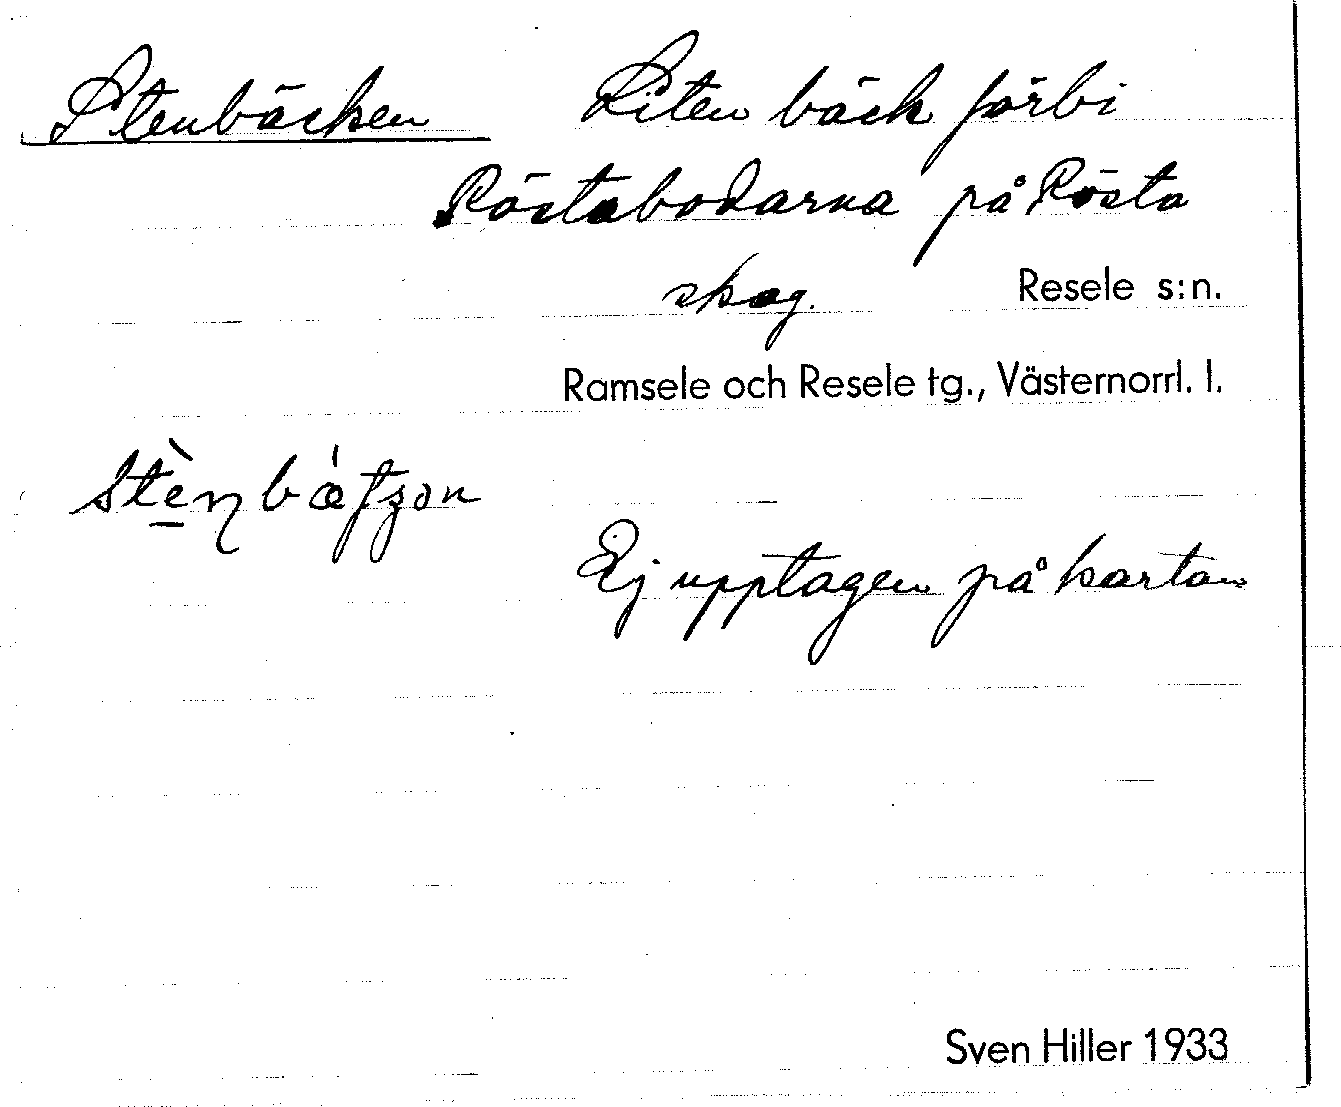 Stenbäcken Liten bäck förbi
Röstabodarna på Rösta
skog. Resele s:n.
Ramsele och Resele tg., Västernorrl. l.
Ej upptagen på kartan
Sven Hiller 1933